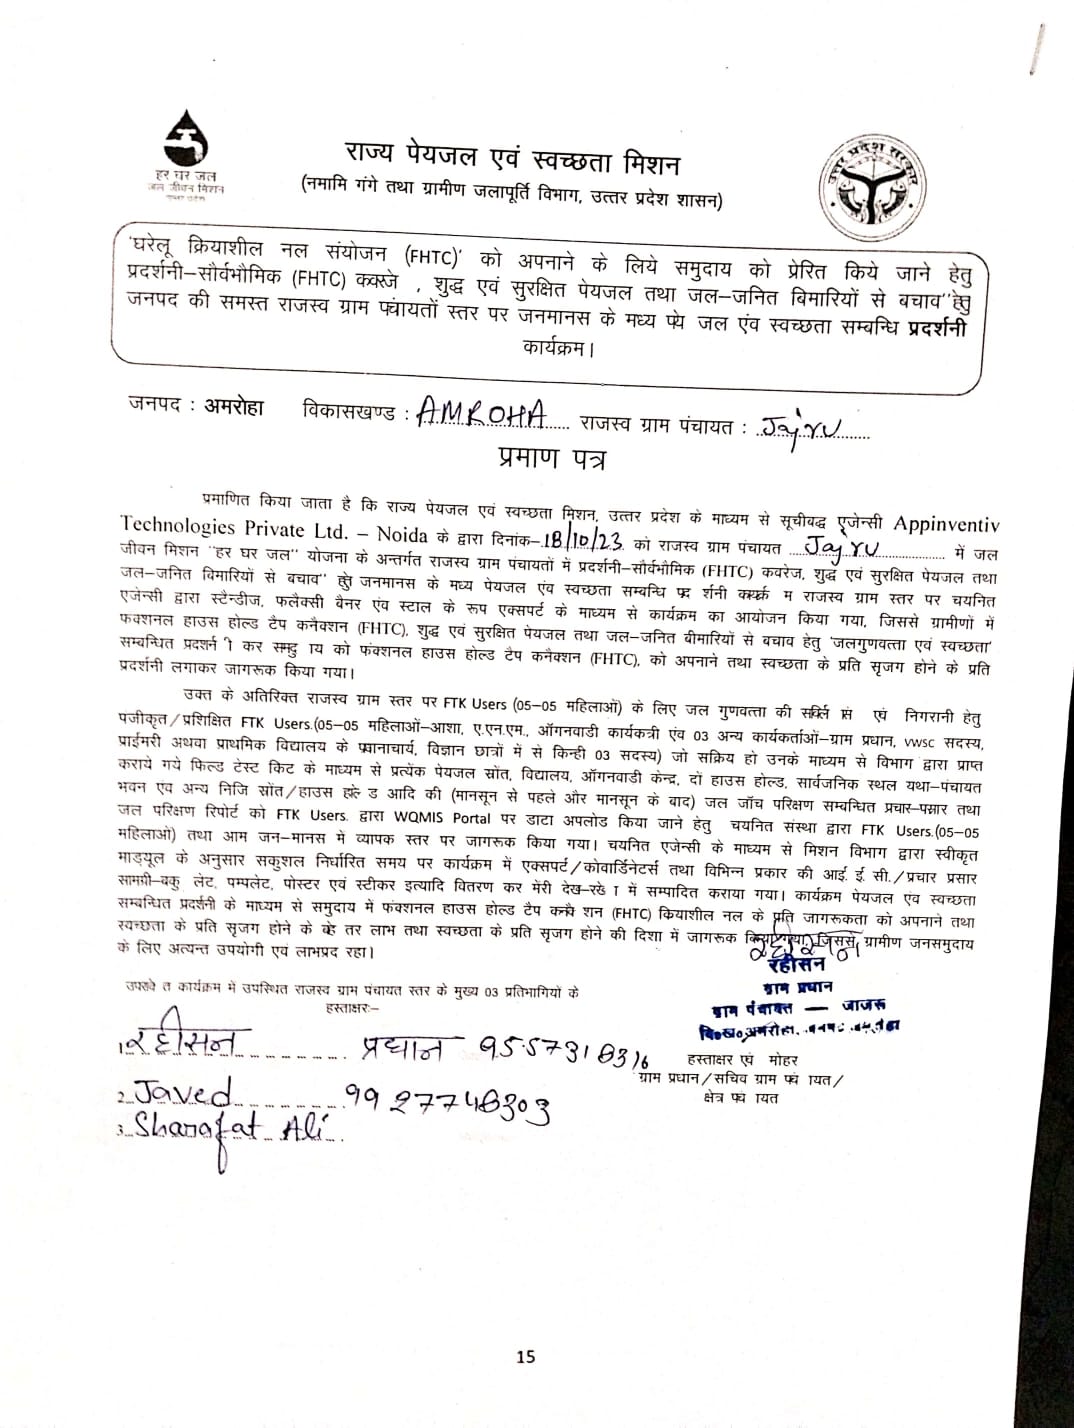 हर घर जल
जल जीवन मिशन
उत्तर प्रदेश सरकार
राज्य पेयजल एवं स्वच्छता मिशन
(नमामि गंगे तथा ग्रामीण जलापूर्ति विभाग, उत्तर प्रदेश शासन)
'घरेलू क्रियाशील नल संयोजन (FHTC)' को अपनाने के लिये समुदाय को प्रेरित किये जाने हेतु
प्रदर्शनी–सौर्वभौमिक (FHTC) , शुद्ध एवं सुरक्षित पेयजल तथा जल–जनित बिमारियों से बचाव" हेतु
जनपद की समस्त राजस्व ग्राम पंचायतों स्तर पर जनमानस के मध्य पेय जल एंव स्वच्छता सम्बन्धि प्रदर्शनी
कार्यक्रम।
जनपद : अमरोहा विकासखण्ड : AMROHA राजस्व ग्राम पंचायत : Jajru
प्रमाण पत्र
प्रमाणित किया जाता है कि राज्य पेयजल एवं स्वच्छता मिशन, उत्तर प्रदेश के माध्यम से सूचीबद्ध एजेन्सी Appinventiv
Technologies Private Ltd. – Noida के द्वारा दिनांक–18/10/23 को राजस्व ग्राम पंचायत Jajru में जल
जीवन मिशन "हर घर जल" योजना के अन्तर्गत राजस्व ग्राम पंचायतों में प्रदर्शनी–सौर्वभौमिक (FHTC) कवरेज, शुद्ध एवं सुरक्षित पेयजल तथा
जल–जनित बिमारियों से बचाव" हेतु जनमानस के मध्य पेयजल एंव स्वच्छता सम्बन्धि राजस्व ग्राम स्तर पर चयनित
एजेन्सी द्वारा स्टेन्डीज, फलैक्सी बैनर एंव स्टाल के रूप एक्सपर्ट के माध्यम से कार्यक्रम का आयोजन किया गया, जिससे ग्रामीणों में
फंक्शनल हाउस होल्ड टैप कनैक्शन (FHTC), शुद्ध एवं सुरक्षित पेयजल तथा जल–जनित बीमारियों से बचाव हेतु 'जलगुणवत्ता एवं स्वच्छता'
सम्बन्धित प्रदर्शनी कर समुदाय को फंक्शनल हाउस होल्ड टैप कनैक्शन (FHTC), को अपनाने तथा स्वच्छता के प्रति सृजग होने के प्रति
प्रदर्शनी लगाकर जागरूक किया गया।
उक्त के अतिरिक्त राजस्व ग्राम स्तर पर FTK Users (05–05 महिलाओं) के लिए जल गुणवत्ता की एवं निगरानी हेतु
पंजीकृत/प्रशिक्षित FTK Users.(05–05 महिलाओं–आशा, ए.एन.एम., ऑगनवाडी कार्यकत्री एंव 03 अन्य कार्यकर्ताओं–ग्राम प्रधान, vwsc सदस्य,
प्राईमरी अथवा प्राथमिक विद्यालय के प्रधानाचार्य, विज्ञान छात्रों में से किन्ही 03 सदस्य) जो सक्रिय हो उनके माध्यम से विभाग द्वारा प्राप्त
कराये गये फिल्ड टेस्ट किट के माध्यम से प्रत्येक पेयजल स्रोंत, विद्यालय, ऑगनवाडी केन्द्र, दों हाउस होल्ड, सार्वजनिक स्थल यथा–पंचायत
भवन एंव अन्य निजि स्रोंत/हाउस होल्ड आदि की (मानसून से पहले और मानसून के बाद) जल जॉच परिक्षण सम्बन्धित प्रचार–प्रसार तथा
जल परिक्षण रिपोर्ट को FTK Users. द्वारा WQMIS Portal पर डाटा अपलोड किया जाने हेतु चयनित संस्था द्वारा FTK Users.(05–05
महिलाओ) तथा आम जन–मानस में व्यापक स्तर पर जागरूक किया गया। चयनित एजेन्सी के माध्यम से मिशन विभाग द्वारा स्वीकृत
माड्यूल के अनुसार सकुशल निर्धारित समय पर कार्यक्रम में एक्सपर्ट/कोवार्डिनेटर्स तथा विभिन्न प्रकार की आई. ई. सी./प्रचार प्रसार
सामग्री–बुकलेट, पम्पलेट, पोस्टर एवं स्टीकर इत्यादि वितरण कर मेंरी देख–रेख में सम्पादित कराया गया। कार्यक्रम पेयजल एंव स्वच्छता
सम्बन्धित प्रदर्शनी के माध्यम से समुदाय में फंक्शनल हाउस होल्ड टैप कनैक्शन (FHTC) कियाशील नल के प्रति जागरूकता को अपनाने तथा
स्वच्छता के प्रति सृजग होने के बेहतर लाभ तथा स्वच्छता के प्रति सृजग होने की दिशा में जागरूक किया गया, जिससे ग्रामीण जनसमुदाय
के लिए अत्यन्त उपयोगी एवं लाभप्रद रहा।
रहीसन
रहीसन
ग्राम प्रधान
ग्राम पंचायत — जाजरू
वि०ख० अमरोहा, जनपद- अमरोहा
उपरोक्त कार्यक्रम में उपस्थित राजस्व ग्राम पंचायत स्तर के मुख्य 03 प्रतिभागियों के
हस्ताक्षरः–
1. रहीसन प्रधान 9557318316
हस्ताक्षर एवं मोहर
ग्राम प्रधान/सचिव ग्राम पंचायत/
क्षेत्र पंचायत
2. Javed 9927748303
3. Sharafat Ali
15